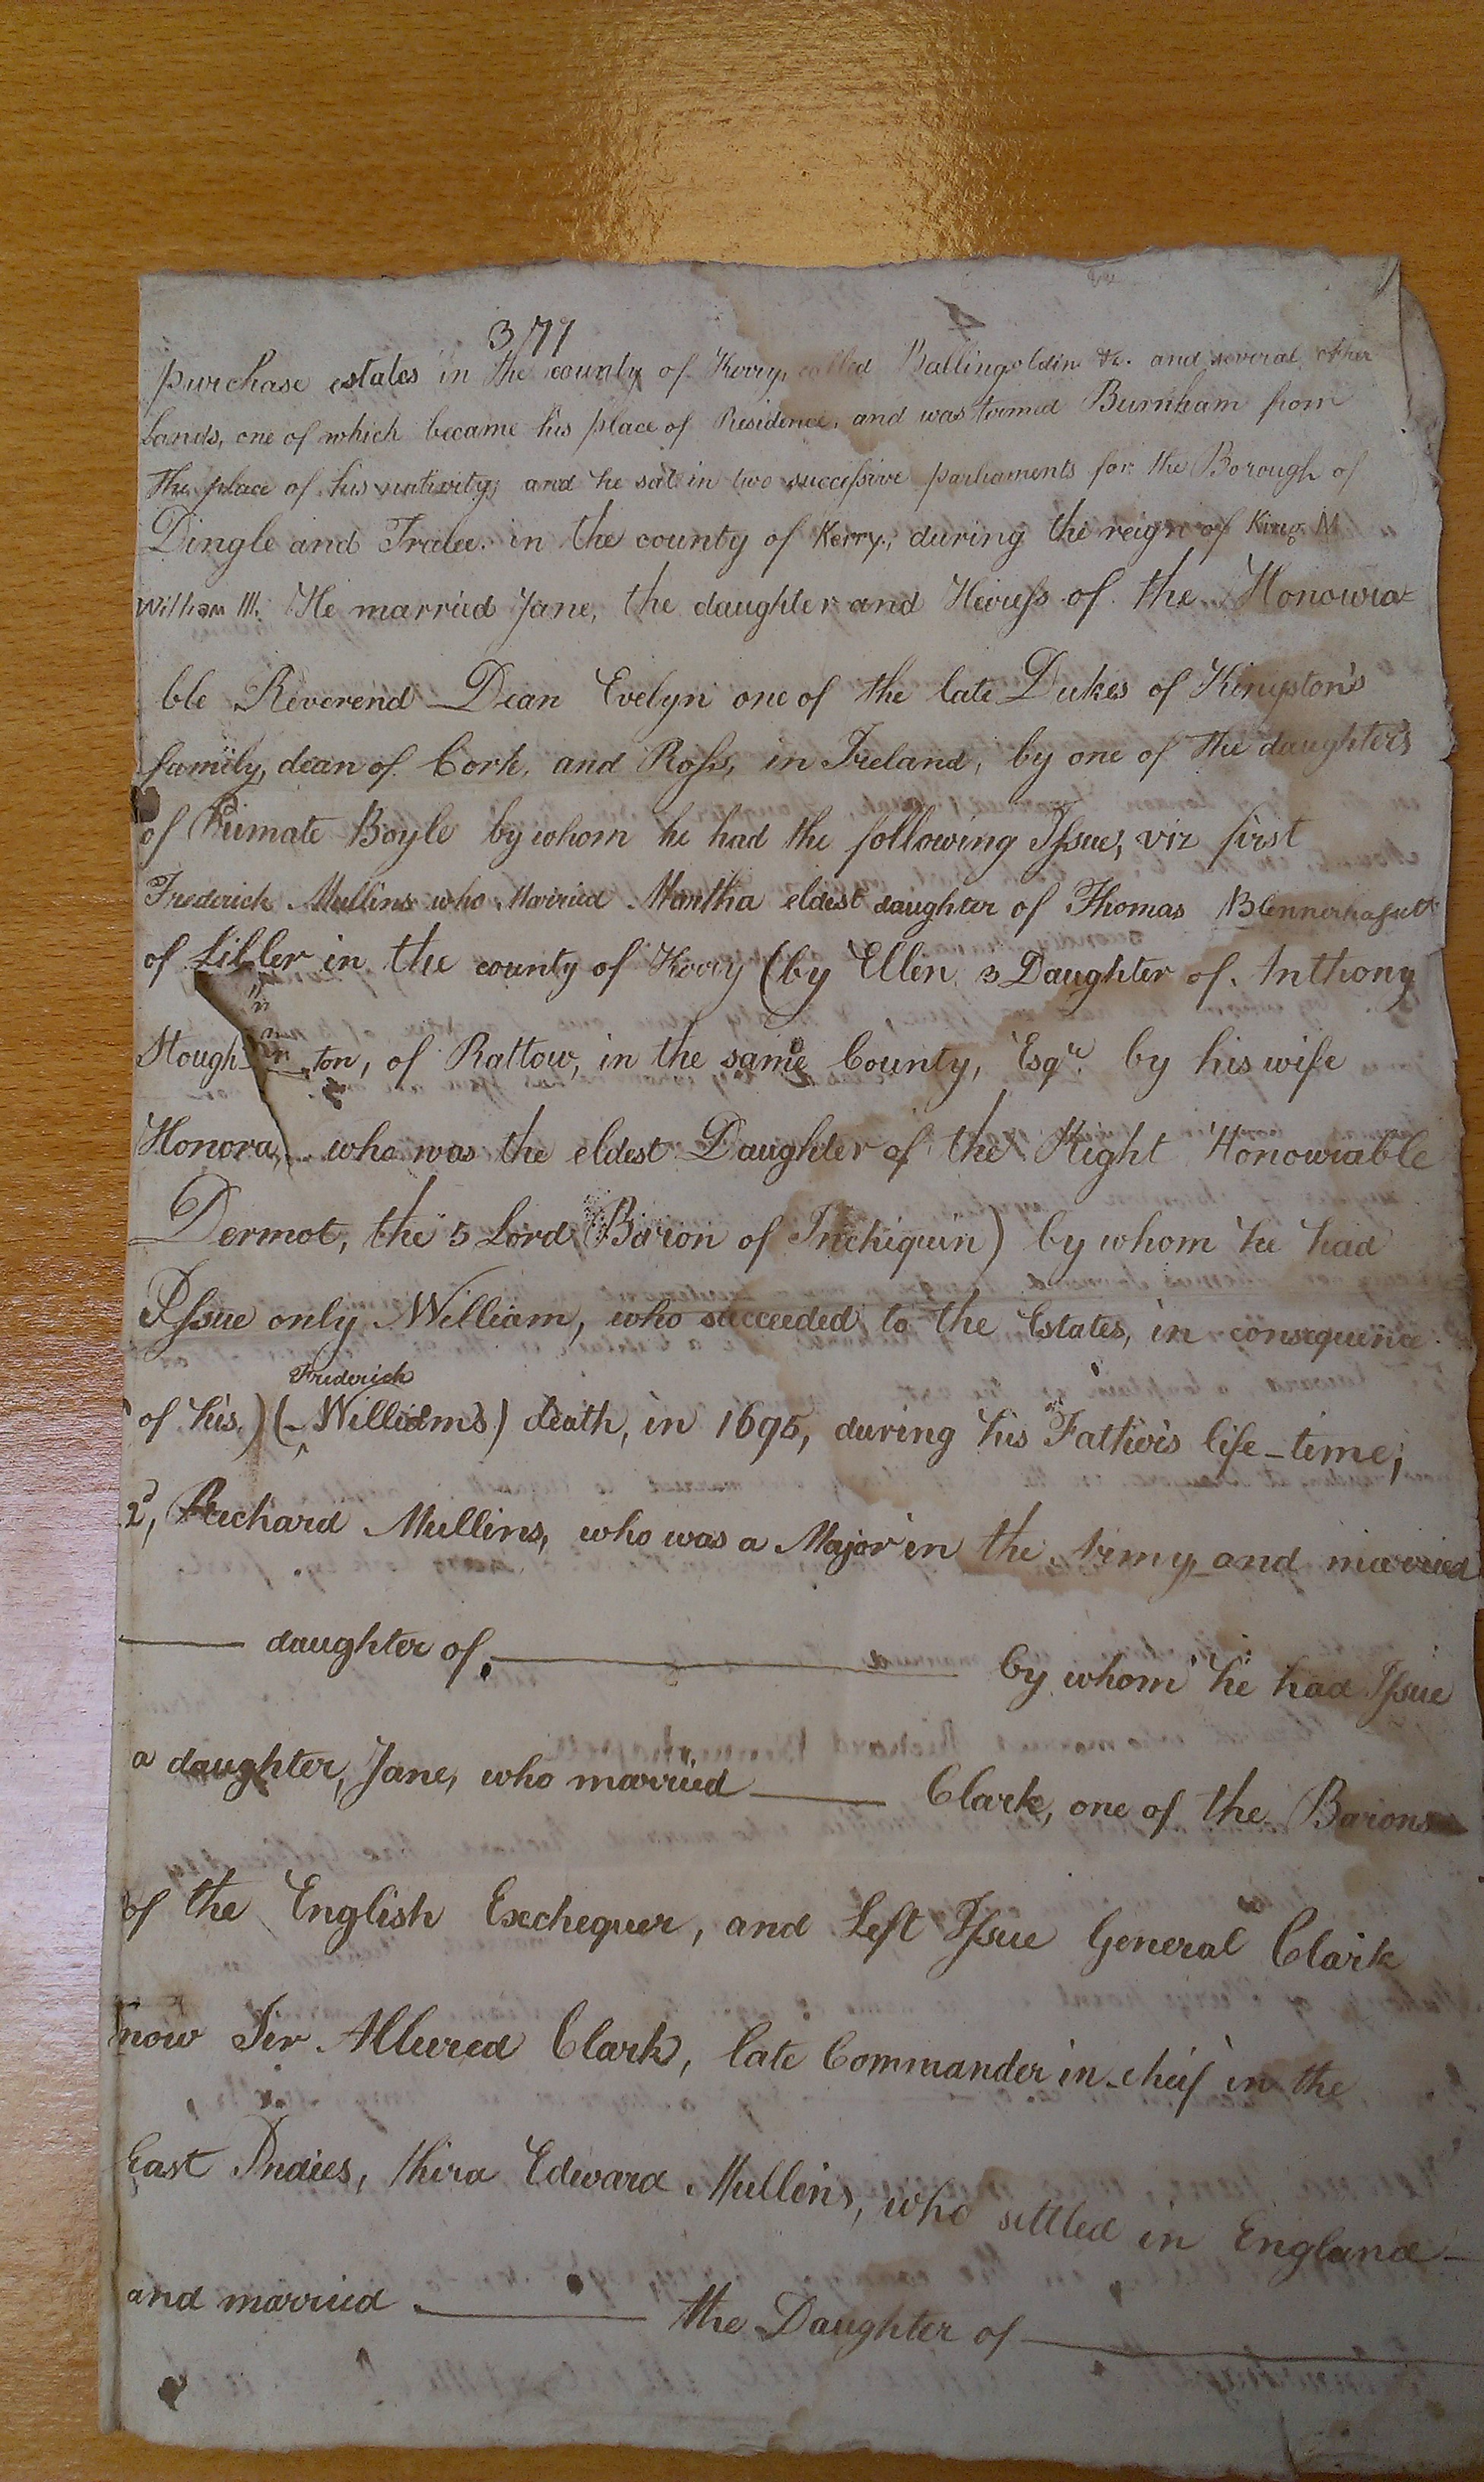 3/77
purchase estates in the county of Kerry, called Ballingoldin &c. and several other
Lands, one of which became his place of Residence, and was termed Burnham from
the place of his nativity; and he sat in two successive parliaments for the Borough of
Dingle and Tralee. in the county of Kerry; during the reign of King
William III. He married Jane, the daughter and Heiress of the Honoura
ble Reverend Dean Evelyn one of the late Dukes of Kingston's
family, dean of Cork, and Ross, in Ireland, by one of the daughters
of Primate Boyle by whom he had the following Issue, viz first
Frederick Mullins who Married Martha eldest daughter of Thomas Blennerhasset
of Litler in the county of Kerry (by Ellen 3 Daughter of Anthony
Stough ton, of Rattow, in the same County, Esqr. by his wife
Honora, who was the eldest Daughter of the Right Honourable
Dermot, the 5 Lord Baron of Inchiquin) by whom he had
Issue only William, who succeeded to the Estates, in consequence
Frederick
of his) (Williams) death, in 1695, during his Father's life-time;
2d, Richard Mullins, who was a Major in the Army and married
daughter of by whom he had Issue
a daughter, Jane, who married Clark, one of the Barons
of the English Exchequer, and Left Issue General Clark
now Sir Allured Clark, late Commander in cheif in the
East Indies, third Edward Mullins, who settled in England
and married the Daughter of